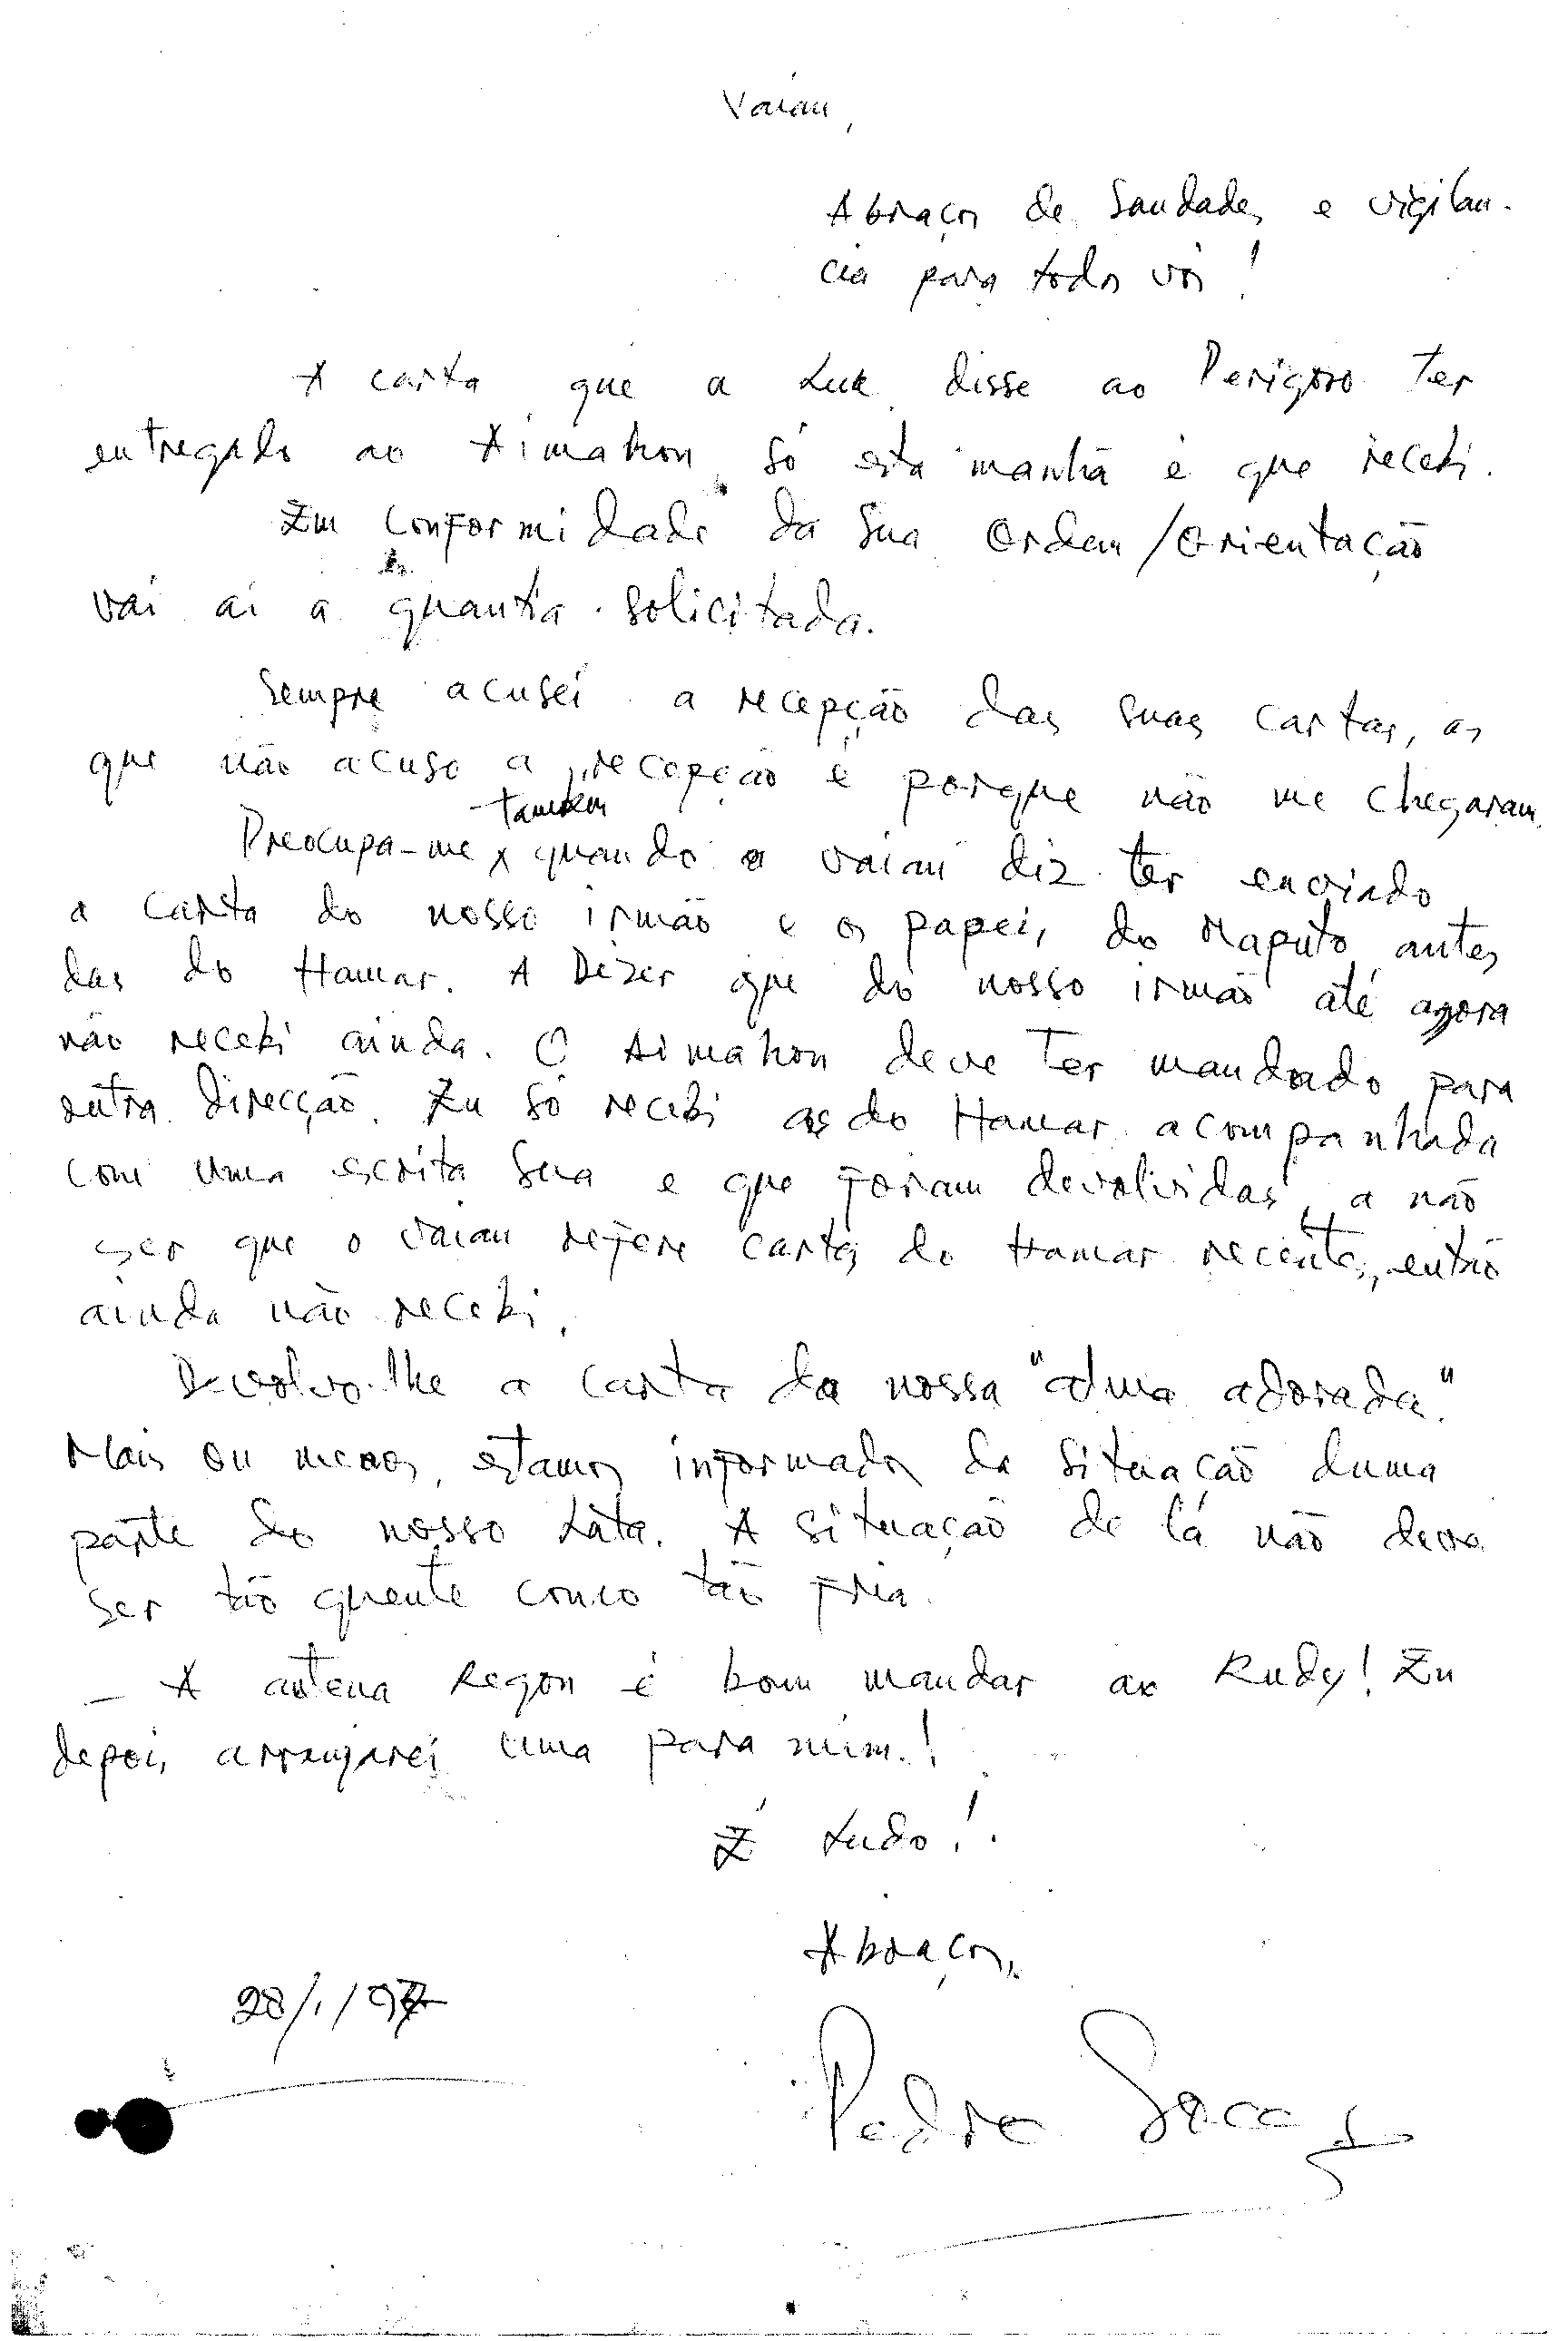 Vaian,
Abraços de Saudades e vigilan-
cia para todos vós!
A carta que a Lua disse ao Perigoso ter
entregado ao Aimahon, só esta manhã é que recebi.
Em Conformidade da Sua Ordem/Orientação
vai aí a quantia solicitada.
Sempre acusei a recepção das suas cartas, as
que não acuso a recepção é porque não me chegaram
também
Preocupa-me x quando o Vaian diz ter enviado
a carta do nosso irmão e os papeis do Maputo antes
das do Hamar. A Dizer que do nosso irmão até agora
não recebi ainda. O Aimahon deve ter mandado para
outra direcção. Eu só recebi as do Hamar acompanhada
com uma escrita Sua e que foram devolvidas, a não
ser que o Vaian refere cartas do Hamar recentes, então
ainda não recebi.
Devolvo-lhe a carta da nossa "alma adorada".
Mais ou menos, estamos informados da situação duma
parte do nosso Lata. A situação de lá não deve
ser tão quente como tão fria.
- A antena Regon é bom mandar ao Rudy! Eu
depois arranjarei uma para mim.!
É tudo!
Abraços,
28/1/97
Pedro